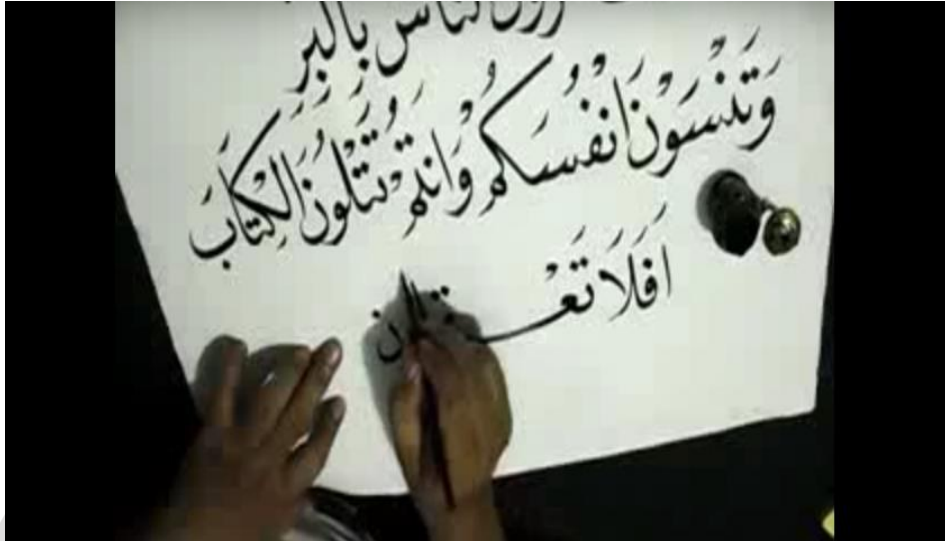 الناس بالبر
وَتَنْسَوْنَ اَنْفُسَكُمْ وَاَنْتُمْ تَتْلُونَ الْكِتَابَ
اَفَلَا تَعْ